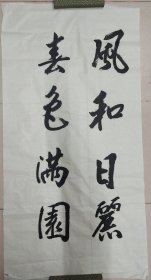 風和日麗
春色滿園